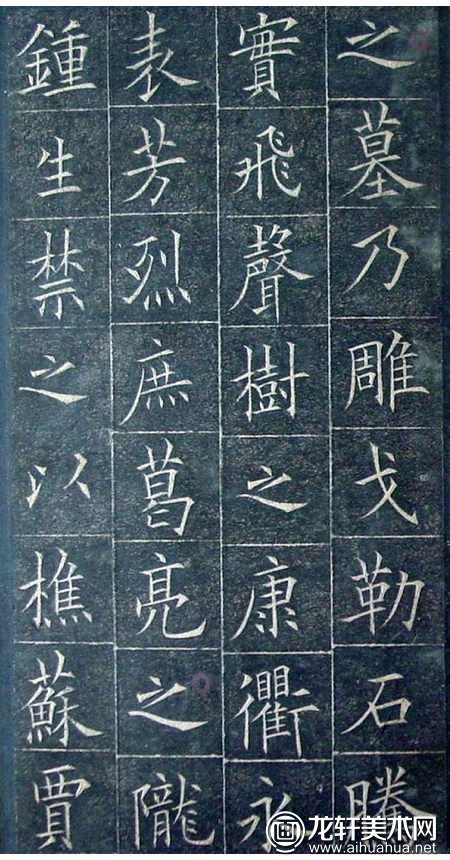 之墓乃雕戈勒石騰
實飛聲樹之康衢永
表芳烈庶葛亮之隴
鍾生禁之以樵蘇賈
龙轩美术网
www.aihuahua.net